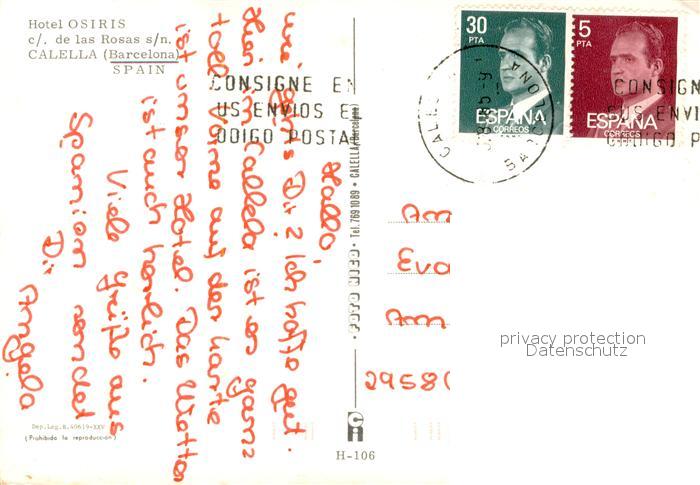 Hotel OSIRIS
c/. de las Rosas s/n.
CALELLA (Barcelona)
SPAIN
30
PTA
ESPAÑA
CORREOS
5
PTA
ESPAÑA
CORREOS
CONSIGNE EN
US ENVIOS E
ODIGO POSTA
CONSIGN
SUS ENVI
CODIGO P
Hallo,
wie geht's Dir? Ich hoffe gut.
Hier in Calella ist es ganz
toll. Vorne auf der Karte
ist unser Hotel. Das Wetter
ist auch herrlich.
Viele Grüße aus
Spanien sendet
Dir Angela
Tel. 7691089 • CALELLA (Barcelona)
Am
Eva
Am
2958(
privacy protection
Datenschutz
Dep.Leg.B.40619-XXV
(Prohibida la reproducción)
H-106